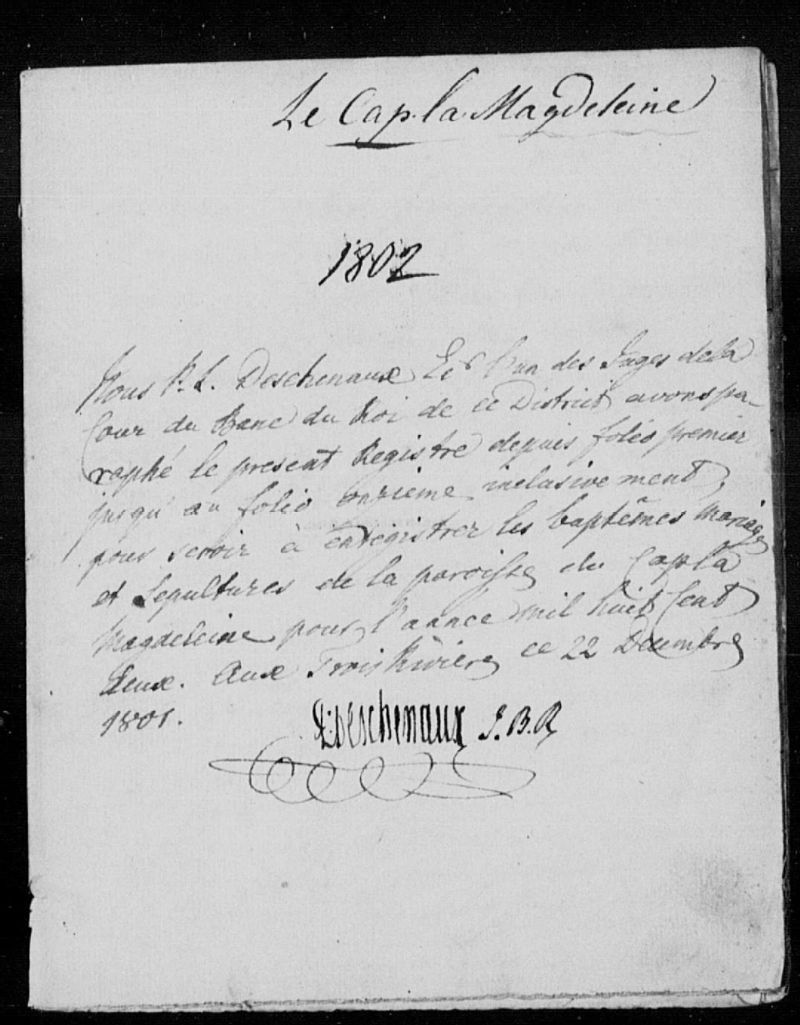 Le Cap la Magdeleine
1802
Nous P. L. Deschenaux Ec.r l'un des Juges de la
Cour du Banc du Roi de ce District avons pa-
raphé le present Registre depuis folio premier
jusqu'au folio onzieme inclusivement,
pour servir à enrégistrer les baptêmes mariages
et Sepultures de la paroisse du Cap la
Magdeleine pour l'année mil huit Cent
deux. Aux Trois Rivieres ce 22 Decembre
1801.
P:L:Deschenaux J.B.R